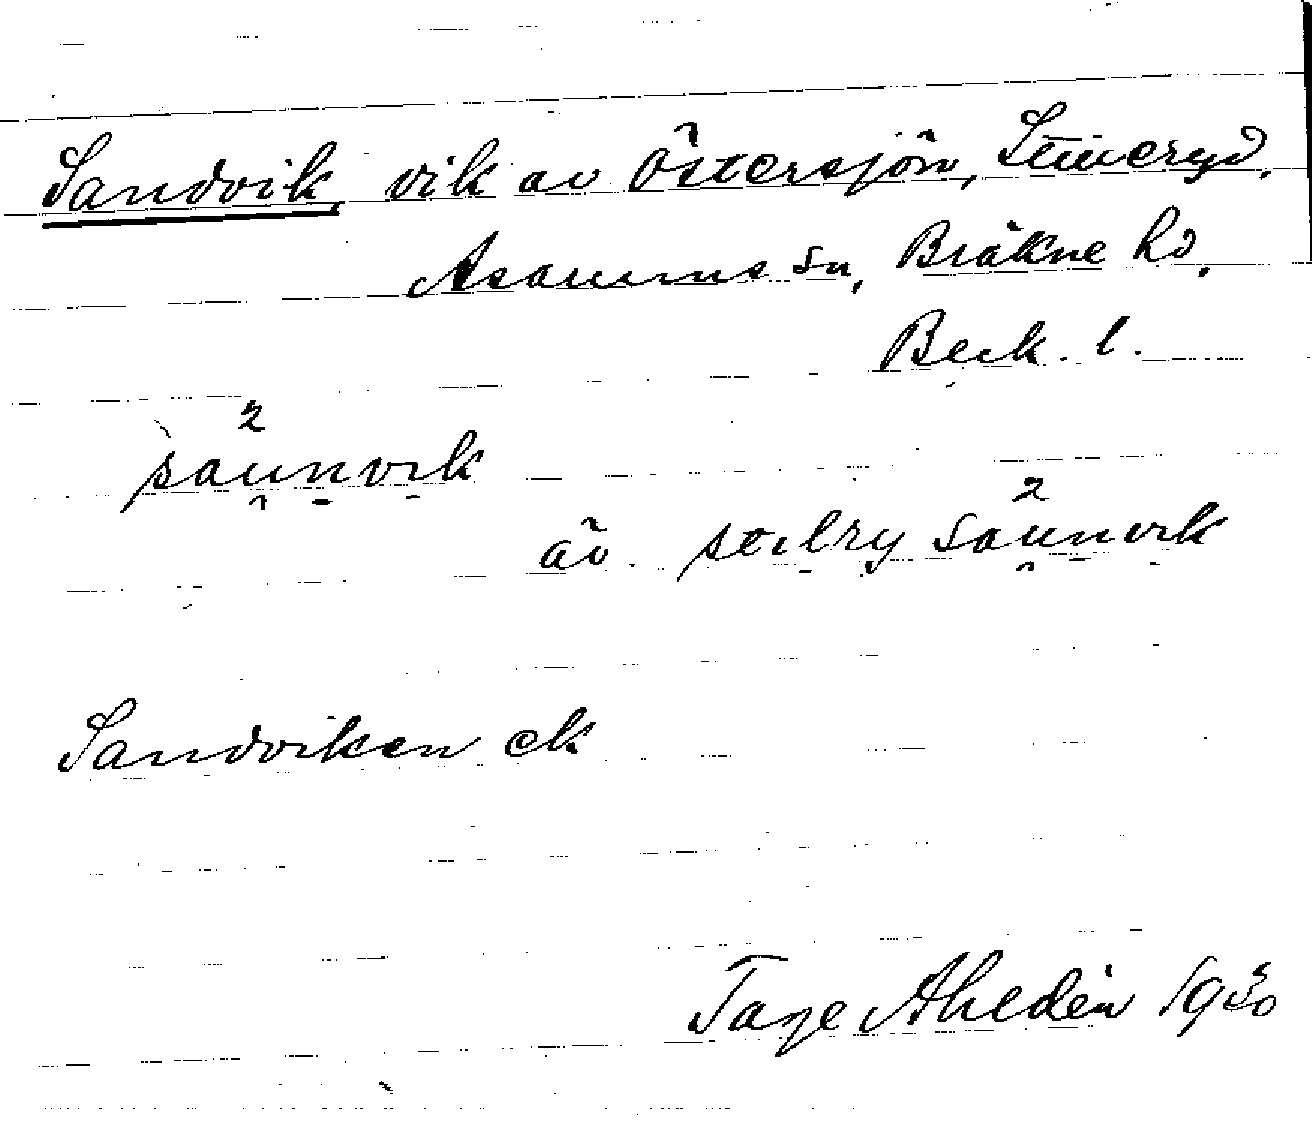 Sandvik, vik av Östersjön, Stilleryd,
Asarums sn, Bräkne hd,
Blek. l.
saunvik
äv. stilry saunvik
Sandviken ek
Tage Ahldén 1930